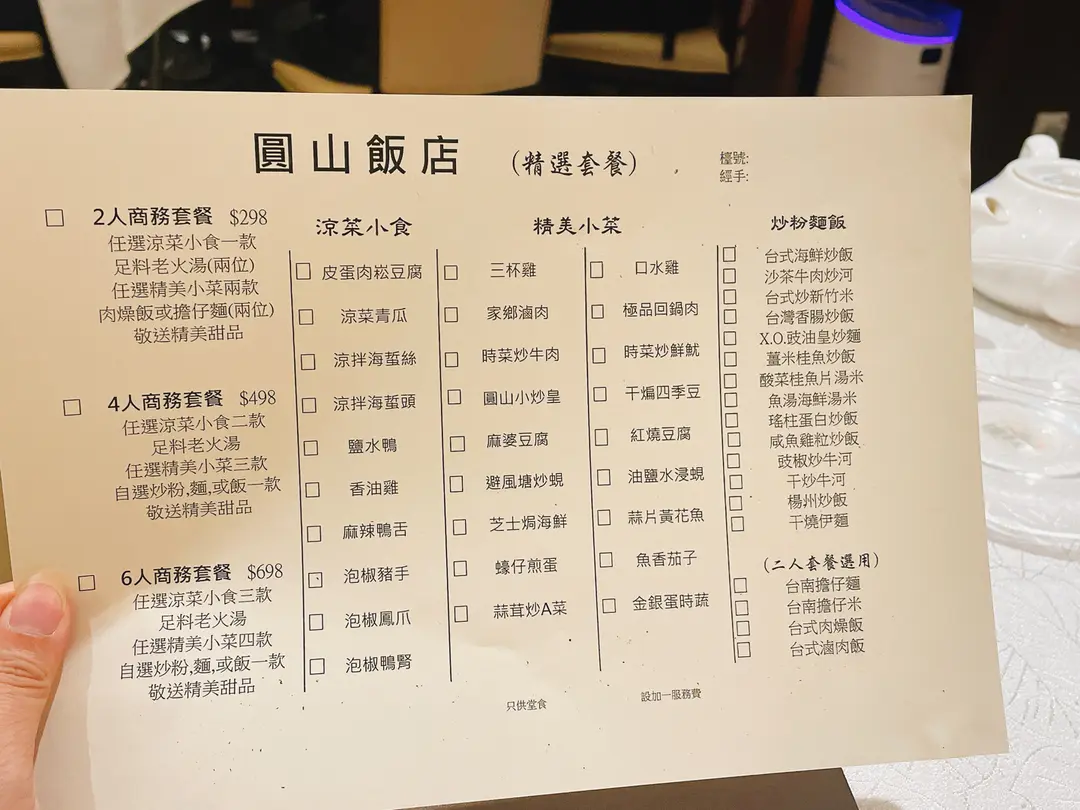 圓山飯店 (精選套餐)
檯號:
經手:
2人商務套餐 $298
任選涼菜小食一款
足料老火湯(兩位)
任選精美小菜兩款
肉燥飯或擔仔麵(兩位)
敬送精美甜品
4人商務套餐 $498
任選涼菜小食二款
足料老火湯
任選精美小菜三款
自選炒粉,麵,或飯一款
敬送精美甜品
6人商務套餐 $698
任選涼菜小食三款
足料老火湯
任選精美小菜四款
自選炒粉,麵,或飯一款
敬送精美甜品
涼菜小食
皮蛋肉崧豆腐
涼菜青瓜
涼拌海蜇絲
涼拌海蜇頭
鹽水鴨
香油雞
麻辣鴨舌
泡椒豬手
泡椒鳳爪
泡椒鴨腎
精美小菜
三杯雞
家鄉滷肉
時菜炒牛肉
圓山小炒皇
麻婆豆腐
避風塘炒蜆
芝士焗海鮮
蠔仔煎蛋
蒜茸炒A菜
口水雞
極品回鍋肉
時菜炒鮮魷
干煸四季豆
紅燒豆腐
油鹽水浸蜆
蒜片黃花魚
魚香茄子
金銀蛋時蔬
炒粉麵飯
台式海鮮炒飯
沙茶牛肉炒河
台式炒新竹米
台灣香腸炒飯
X.O.豉油皇炒麵
薑米桂魚炒飯
酸菜桂魚片湯米
魚湯海鮮湯米
瑤柱蛋白炒飯
咸魚雞粒炒飯
豉椒炒牛河
干炒牛河
楊州炒飯
干燒伊麵
(二人套餐選用)
台南擔仔麵
台南擔仔米
台式肉燥飯
台式滷肉飯
只供堂食
設加一服務費